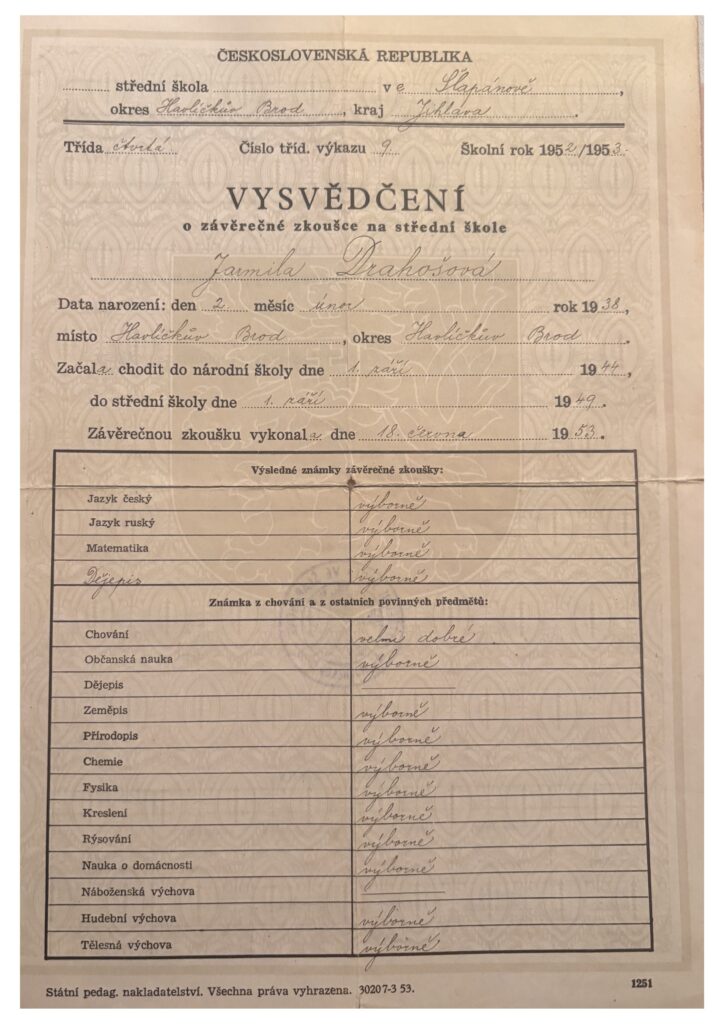 ČESKOSLOVENSKÁ REPUBLIKA
střední škola v e Šlapánově,
okres Havlíčkův Brod, kraj Jihlava.
Třída čtvrtá Číslo tříd. výkazu 9 Školní rok 1952/1953
VYSVĚDČENÍ
o závěrečné zkoušce na střední škole
Jarmila Drahošová
Data narození: den 2 měsíc únor rok 1938,
místo Havlíčkův Brod, okres Havlíčkův Brod.
Začala chodit do národní školy dne 1. září 1944,
do střední školy dne 1. září 1949.
Závěrečnou zkoušku vykonala dne 18. června 1953.
Výsledné známky závěrečné zkoušky:
Jazyk český výborně
Jazyk ruský výborně
Matematika výborně
Dějepis výborně
Známka z chování a z ostatních povinných předmětů:
Chování velmi dobré
Občanská nauka výborně
Dějepis
Zeměpis výborně
Přírodopis výborně
Chemie výborně
Fysika výborně
Kreslení výborně
Rýsování výborně
Nauka o domácnosti výborně
Náboženská výchova
Hudební výchova výborně
Tělesná výchova výborně
Státní pedag. nakladatelství. Všechna práva vyhrazena. 30207-3 53. 1251